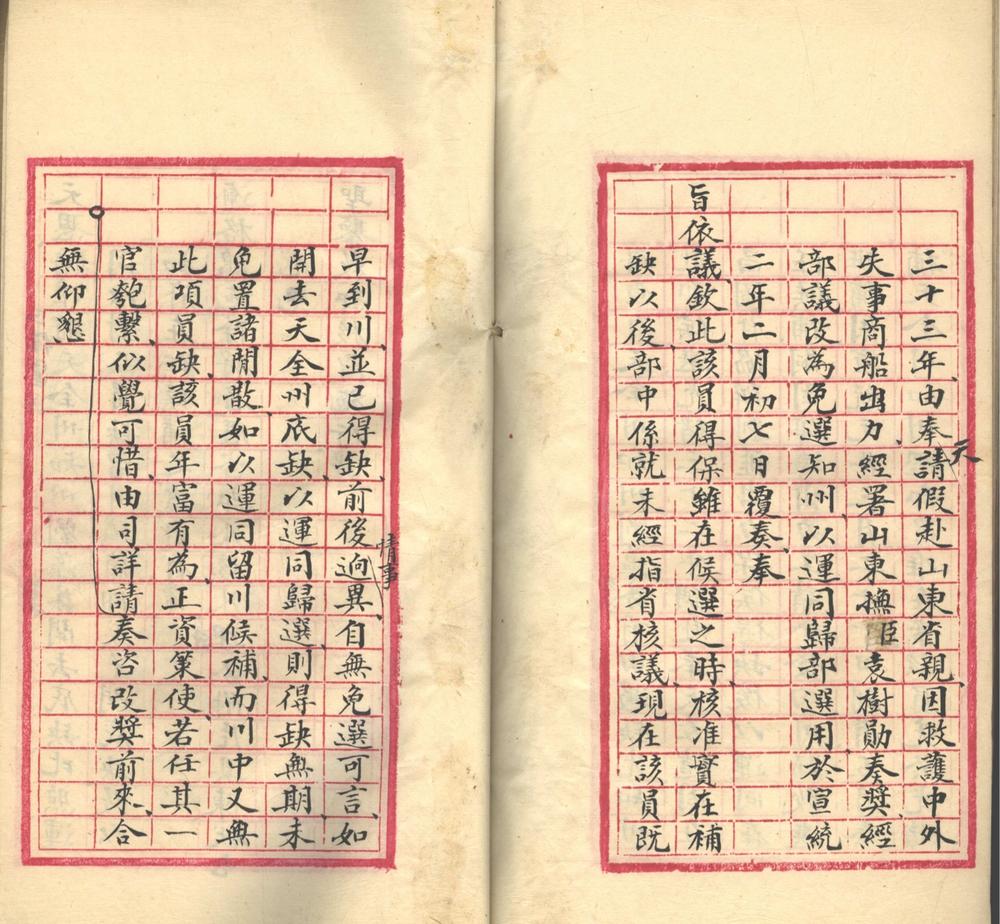 三十三年、由奉天請假赴山東省親、因救護中外
失事商船出力、經署山東撫臣袁樹勛奏獎、經
部議改為免選知州、以運同歸部選用、於宣統
二年二月初七日覆奏、奉
旨依議、欽此、該員得保雖在候選之時、核准實在補
缺以後、部中係就未經指省核議、現在該員既
早到川、並已得缺、前後情事迥異、自無免選可言、如
開去天全州底缺、以運同歸選、則得缺無期、未
免置諸閒散、如以運同留川候補、而川中又無
此項員缺、該員年富有為、正資策使、若任其一
官匏繫、似覺可惜、由司詳請奏咨改獎前來、合
無仰懇